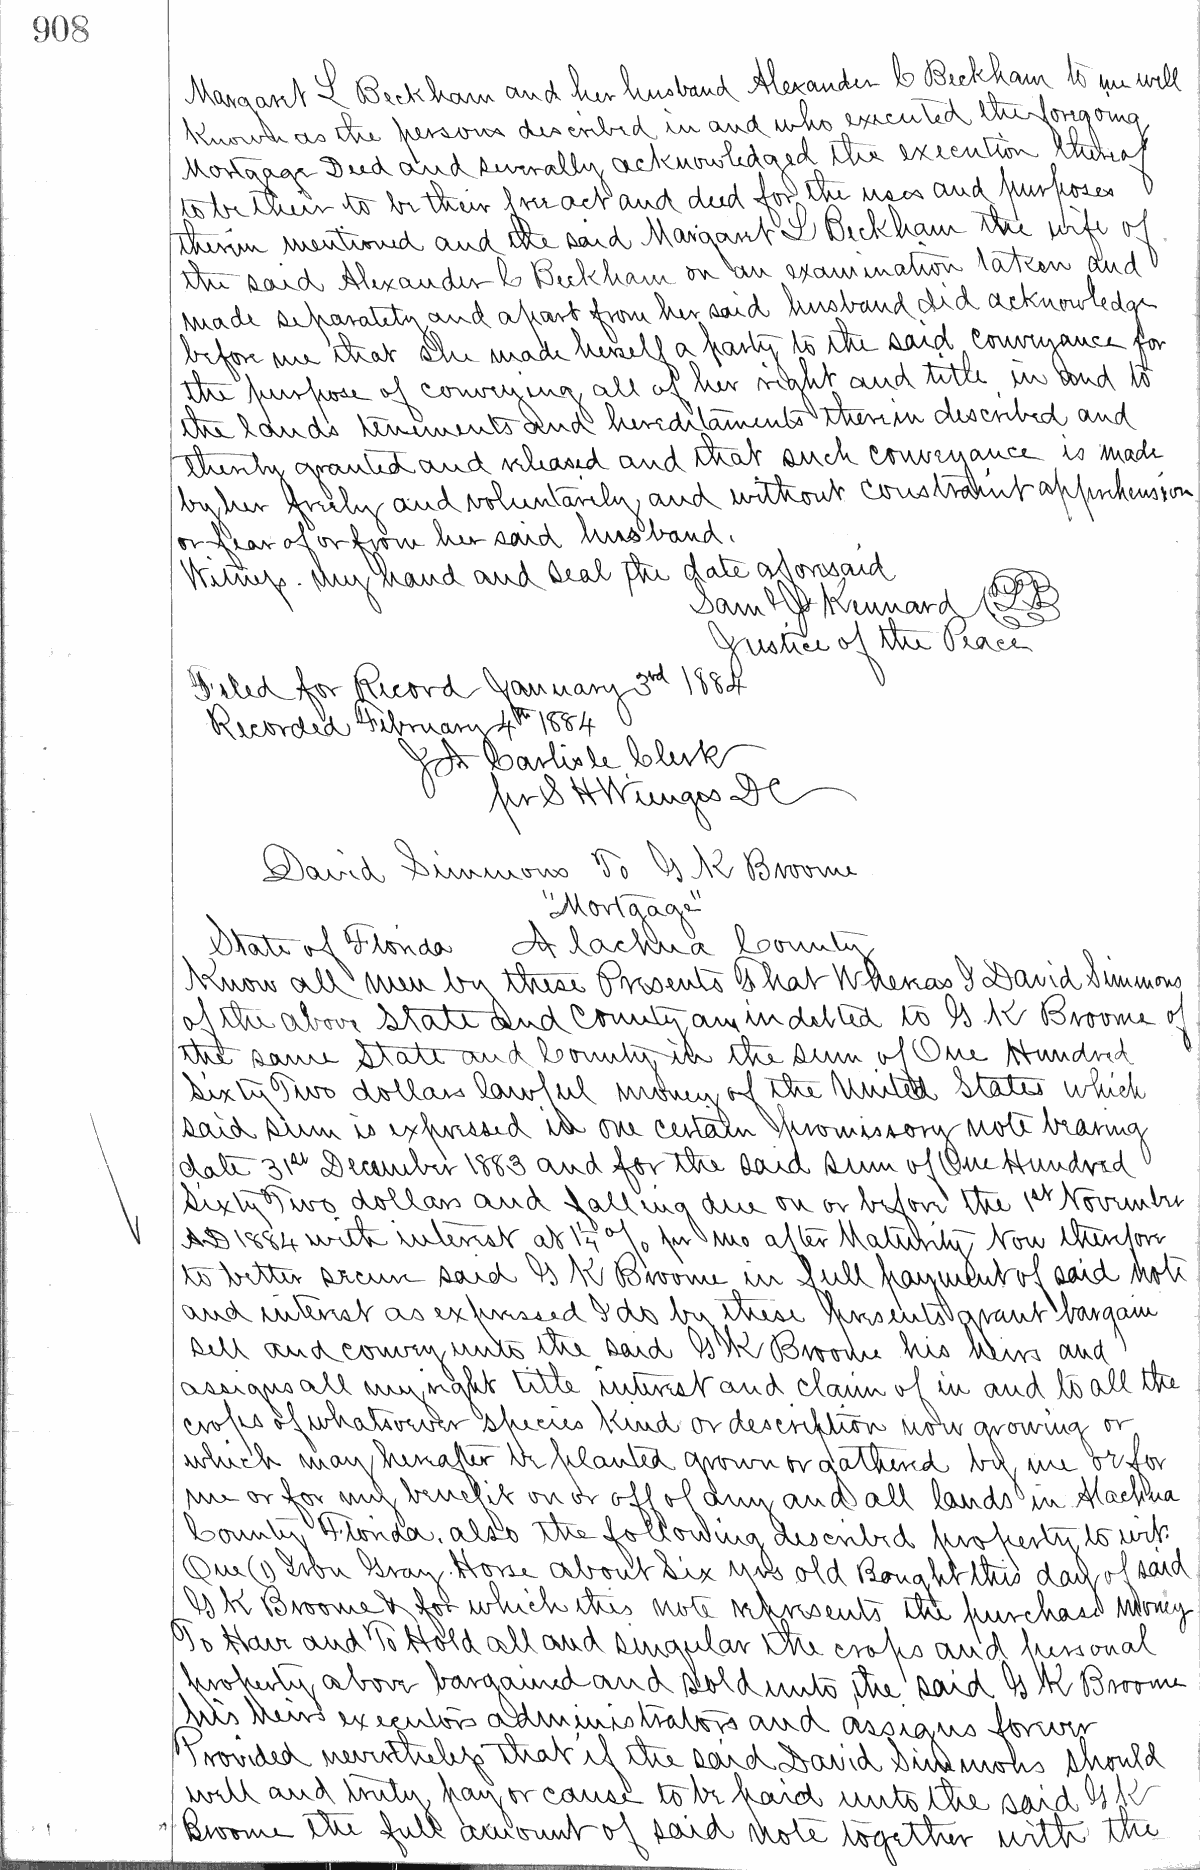 908
Margaret L Beckham and her husband Alexander C Beckham to me well
Known as the persons described in and who executed the foregoing
Mortgage Deed and severally acknowledged the execution thereof
to be their to be their free act and deed for the uses and purposes
therein mentioned and the said Margaret L Beckham the wife of
the said Alexander C Beckham on an examination taken and
made separately and apart from her said husband did acknowledge
before me that she made herself a party to the said conveyance for
the purpose of conveying all of her right and title in and to
the lands tenements and hereditaments therein described and
thereby granted and released and that such conveyance is made
by her freely and voluntarily and without constraint apprehension
or fear of or from her said husband.
Witness. My hand and seal the date aforesaid
Saml J Kennard
Justice of the Peace
Filed for Record January 3rd 1884
Recorded February 4th 1884
J A Carlisle Clerk
pr S H Wienges DC
David Simmons To G K Broome
"Mortgage"
State of Florida Alachua County
Know all men by these Presents That Whereas I David Simmons
of the above State and County am indebted to G. K Broome of
the same State and County in the sum of One Hundred
Sixty Two dollars lawful money of the United States which
said sum is expressed in one certain promissory note bearing
date 31st December 1883 and for the said sum of One Hundred
Sixty Two dollars and falling due on or before the 1st November
AD 1884 with interest at 1¼ % pr mo after Maturity Now therefore
to better secure said G K Broome in full payment of said note
and interest as expressed I do by these presents grant bargain
sell and convey unto the said G K Broome his heirs and
assigns all my right title interest and claim of in and to all the
crops of whatsoever species kind or description now growing or
which may hereafter be planted grown or gathered by me or for
me or for my benefit on or off of any and all lands in Alachua
County Florida. also the following described property to wit.
One (1) Iron Gray Horse about Six yrs old Bought this day of said
G K Broome & for which this note represents the purchase money
To Have and To Hold all and singular the crops and personal
property above bargained and sold unto the said G K Broome
his heirs executors administrators and assigns forever
Provided nevertheless that if the said David Simmons should
well and truly pay or cause to be paid unto the said G K
Broome the full amount of said note together with the